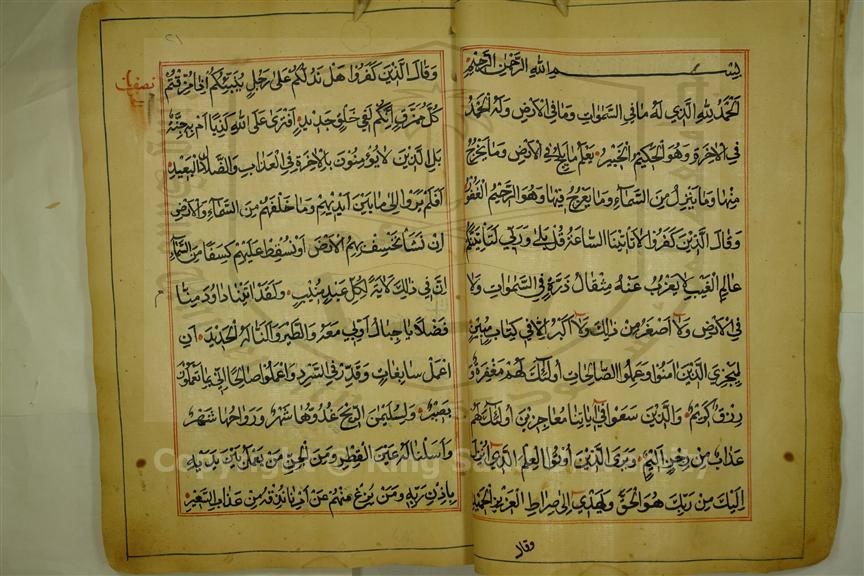 بسم الله الرحمن الرحيم
الحمد لله الذي له ما في السموات وما في الارض وله الحمد
في الاخرة وهو الحكيم الخبير يعلم ما يلج في الارض وما يخرج
منها وما ينزل من السماء وما يعرج فيها وهو الرحيم الغفور
وقال الذين كفروا لا تاتينا الساعة قل بلى وربي لتاتينكم
عالم الغيب لا يعزب عنه مثقال ذرة في السموات ولا
في الارض ولا اصغر من ذلك ولا اكبر الا في كتاب مبين
ليجزي الذين امنوا وعملوا الصالحات اولئك لهم مغفرة و
رزق كريم والذين سعوا في اياتنا معاجزين اولئك لهم
عذاب من رجز اليم ويرى الذين اوتوا العلم الذي انزل
اليك من ربك هو الحق ويهدي الى صراط العزيز الحميد
وقال
وقال الذين كفروا هل ندلكم على رجل ينبئكم اذا مزقتم
كل ممزق انكم لفي خلق جديد افترى على الله كذبا ام به جنة
بل الذين لا يؤمنون بالاخرة في العذاب والضلال البعيد
افلم يروا الى ما بين ايديهم وما خلفهم من السماء والارض
ان نشا نخسف بهم الارض او نسقط عليهم كسفا من السماء
ان في ذلك لاية لكل عبد منيب ولقد اتينا داود منا
فضلا يا جبال اوبي معه والطير والنا له الحديد ان
اعمل سابغات وقدر في السرد واعملوا صالحا اني بما تعملون
بصير ولسليمن الريح غدوها شهر ورواحها شهر
واسلنا له عين القطر ومن الجن من يعمل بين يديه
باذن ربه ومن يزغ منهم عن امرنا نذقه من عذاب السعير
Copyright © King Saud University